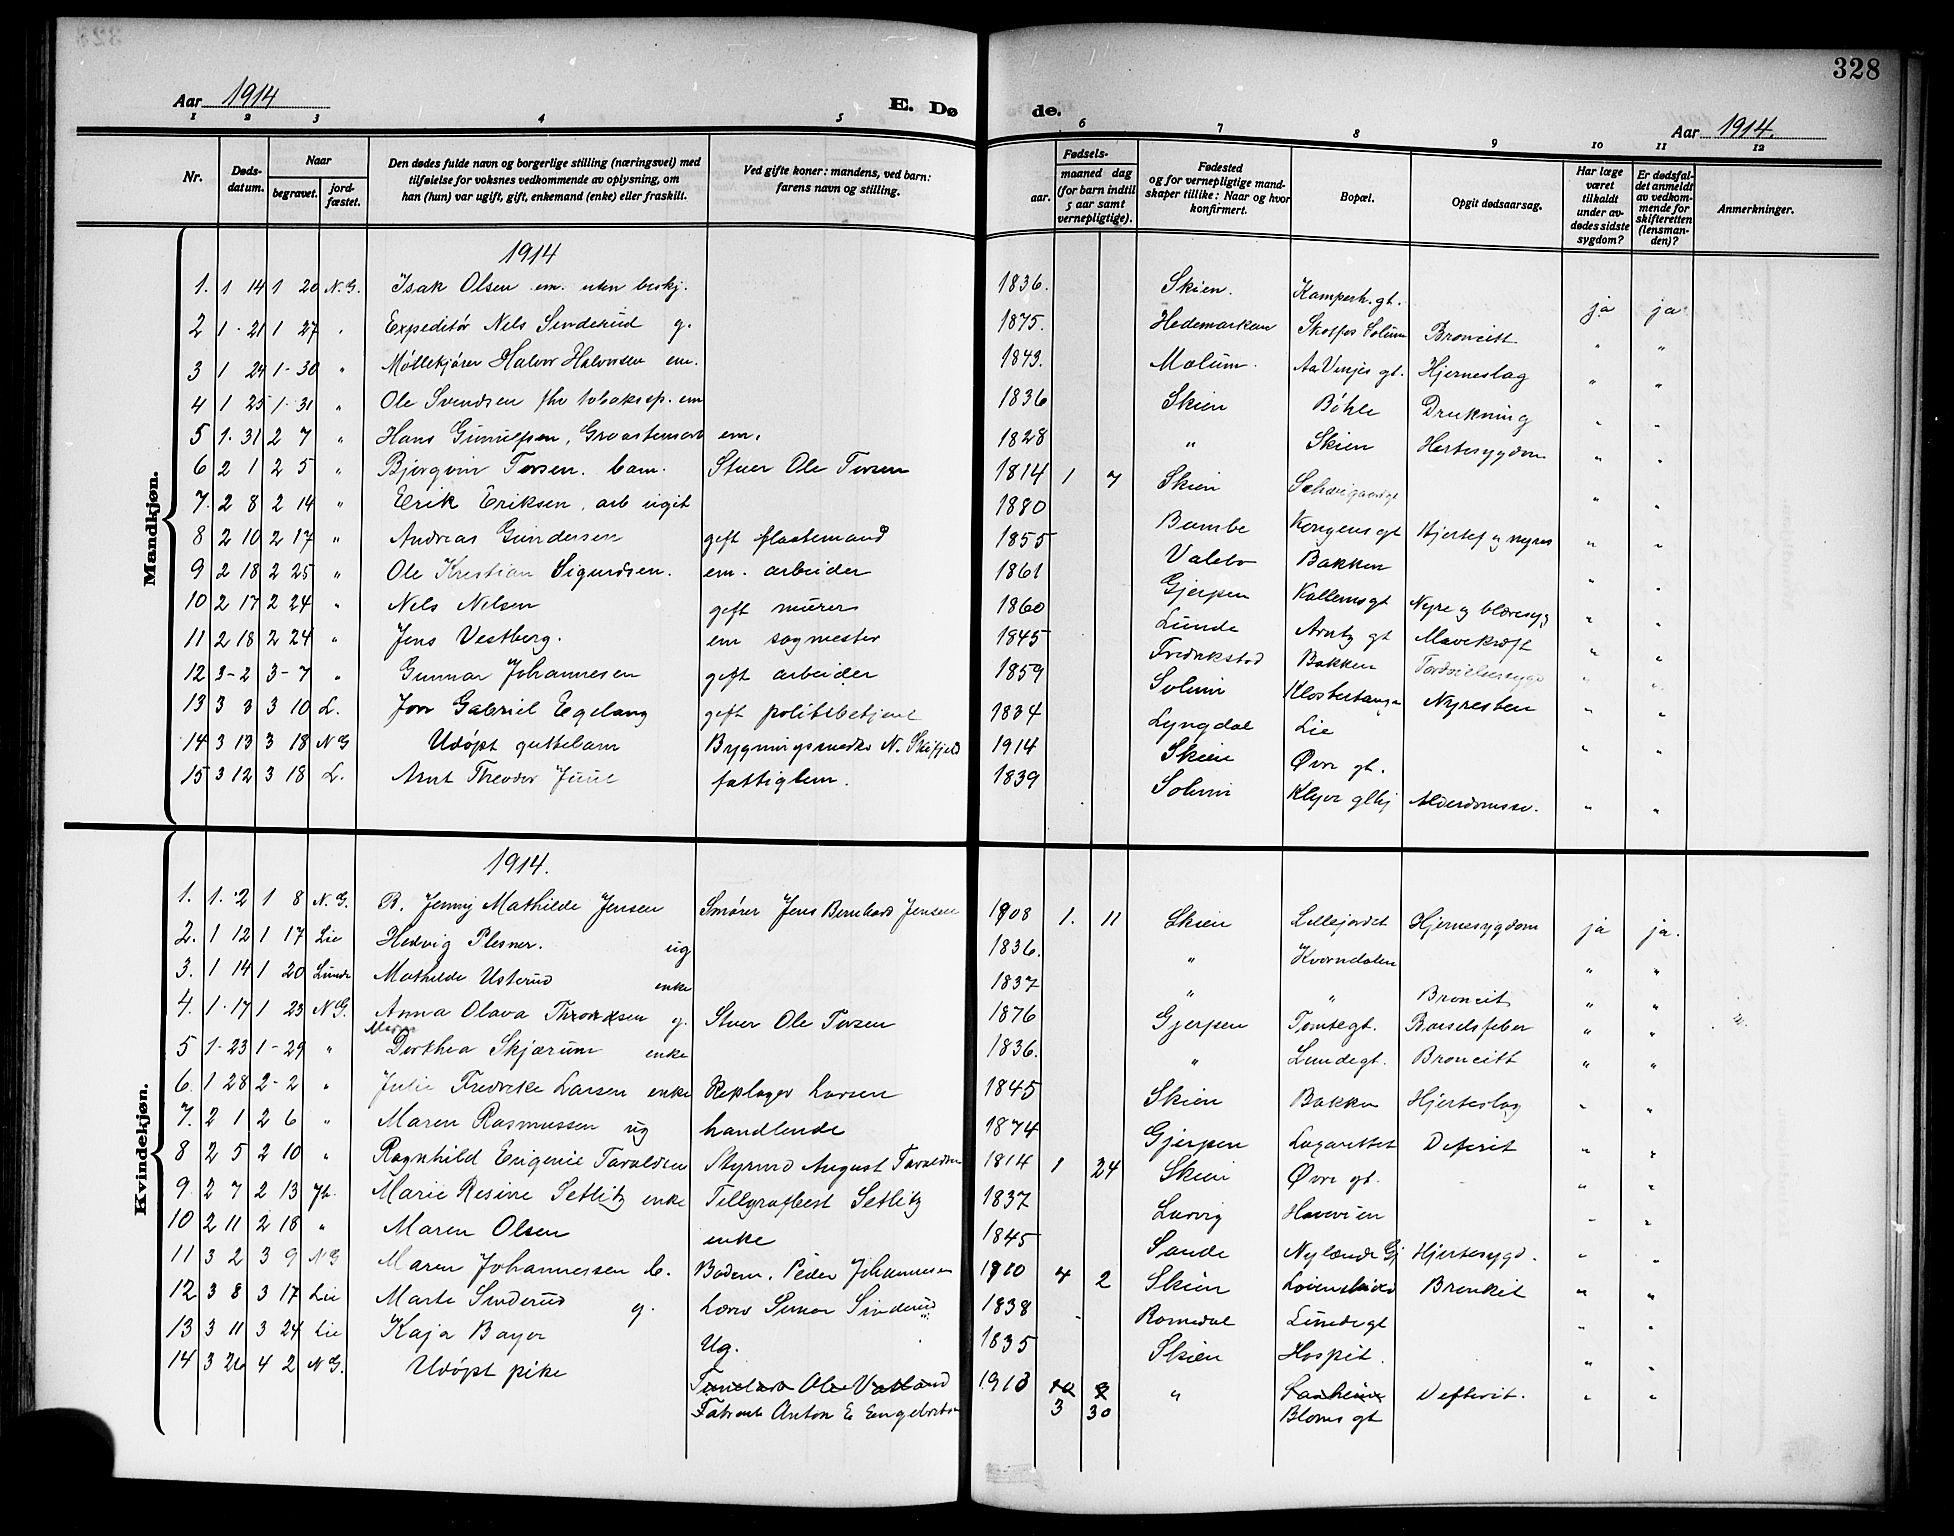 328
Aar 1914
E. Dø de.
Aar 1914.
1 2 3 4 5 6 7 8 9 10 11 12
Nr. Døds-datum. Naar begravet. jord-fæstet. Den dødes fulde navn og borgerlige stilling (næringsvei) med tilføielse for voksnes vedkommende av oplysning, om han (hun) var ugift, gift, enkemand (enke) eller fraskilt. Ved gifte koner: mandens, ved barn: farens navn og stilling. Fødsels- aar. maaned dag (for barn indtil 5 aar samt vernepligtige). Fødested og for vernepligtige mand-skaper tillike: Naar og hvor konfirmert. Bopæl. Opgit dødsaarsag. Har læge været tilkaldt under av-dødes sidste sygdom? Er dødsfal-det anmeldt av vedkom-mende for skifteretten (lensman-den)? Anmerkninger.
Mandkjøn.
1914
1. 1 14 1 20 N.G. Isak Olsen em. uten beskj. 1836. Skien. Kamperh. gt. ja ja
2 1 21 1 27 " Expeditør Nels Sinderud g. 1875. Hedemarken Skotfos Solum Broncitt " "
3 1 24 1-30 " Møllekjører Halvor Halvorsen em. 1843. Mælum. Aa Vinjes gt. Hjerneslag " "
4 1 25 1 31 " Ole Svendsen fhv tobaksp. em 1836 Skien Bøhle Drukning " "
5 1. 31 2 7 " Hans Gunulfsen, Graastensvei em. 1828 " Skien Hertesygdom " "
6 2 1 2 5 " Bjørgvin Torsen. barn. Stuer Ole Torsen 1814 1 7 Skien Schweigaardsgt "
7. 2 8 2 14 " Erik Eriksen, arb ugift 1880 "
8 2 10 2 17 " Andreas Gundersen gift flaatemand 1855 Bamble Kongens gt Hjertef og nyres " "
9 2 18 2 25 " Ole Kristian Sigurdsen. em. arbeider 1861 Valebo Bakken " "
10 2 17 2 24 " Nels Nelsen gift murer 1860 Gjerpen Kallems gt Nyre og blæresyg " "
11 2 18 2 24 " Jens Vestberg. em sagmester 1845 Lunde Arntz gt Mavekræft " "
12 3-2 3-7 " Gunnar Johannesen gift arbeider 1859 Fredrikstad Bakken " "
13 3 3 3 10 L. Jon Gabriel Egelang gift politibetjent 1834 Solum Klostertangen Nyresten " "
14 3 13 3 18 N G Udøpt guttebarn Bygningssnedker N. Skifjeld 1914 Lyngdal Lie " "
15 3 12 3 18 L. Arnt Theodor Juul fattiglem. 1839 Skien Øvre gt.
Solum Klyve glhj Alderdomssv. " "
Kvindekjøn.
1914.
1. 1. 2 1 8 N.G. B. Jenny Mathilde Jensen Smører Jens Bernhard Jensen 1908 1. 11 Skien Lillejordet Hjernesygdom ja ja.
2. 1 12 1 17 Lie Hedvig Plesner. ug 1836. " Kverndalen " "
3. 1 14 1 20 Lunde Mathilde Usterud enke 1837 " " Broncit " "
4. 1. 17 1 23 N G. Anna Olava Throndsen g. Stuer Ole Torsen 1876 Gjerpen Tomtegt. Barselsfeber " "
5 1-23 1-29 " Maren Dorthea Skjærum enke 1836. " Lundegt. Broncitt " "
6. 1 28 2-2 " Julie Fredrikke Larsen enke Repslager Larsen 1845 Skien Bakken Hjerteslag " "
7. 2 1 2 6 " Maren Rasmussen ug handlende 1874 Gjerpen Lazarettet Defterit " "
8 2 5 2 10 " Ragnhild Eugenie Taraldsen Styrmd August Taraldsen 1814 1 24 Skien Øvre gt. " "
9. 2 7 2 13 Jh. Marie Resine Setlitz enke Tellgrafbest Setlitz 1837 Larvig Havveien " "
10 2 11 2 18 " Maren Olsen enke 1845 Sande Nylænde Gj Hjertesygd. " "
11 3 2 3 9 N G Maren Johannessen b. Bødm. Peder Johannesen 1910 4 2 Skien Bronkit " "
12 3 8 3 17 Lie Marte Sinderud g. Lærer Simen Sinderud 1838 Romedal Lundegt " "
13 3 11 3 24 Lie Kaja Bayer Ug. 1835 Skien Hospit. " "
14 3 26 4 2 N G. Udøpt pike Ole Vatland 1913 10 9 " Defterit. " "
Fabrarb Anton E Engebretsen 3 30 Bloms gt